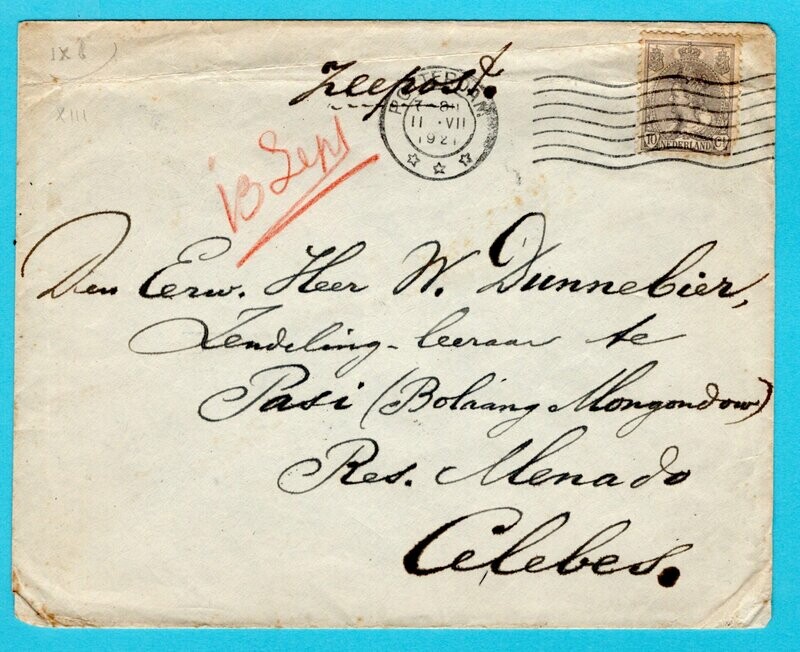 IX 8
XIII
Zeepost.
ROTTERDAM
11 ·VII
1921
10 Ct
NEDERLAND
13 Sept
Den Eerw. Heer W. Dunnebier,
Zendeling-leeraar te
Pasi (Bolaäng Mongondow)
Res. Menado
Celebes.